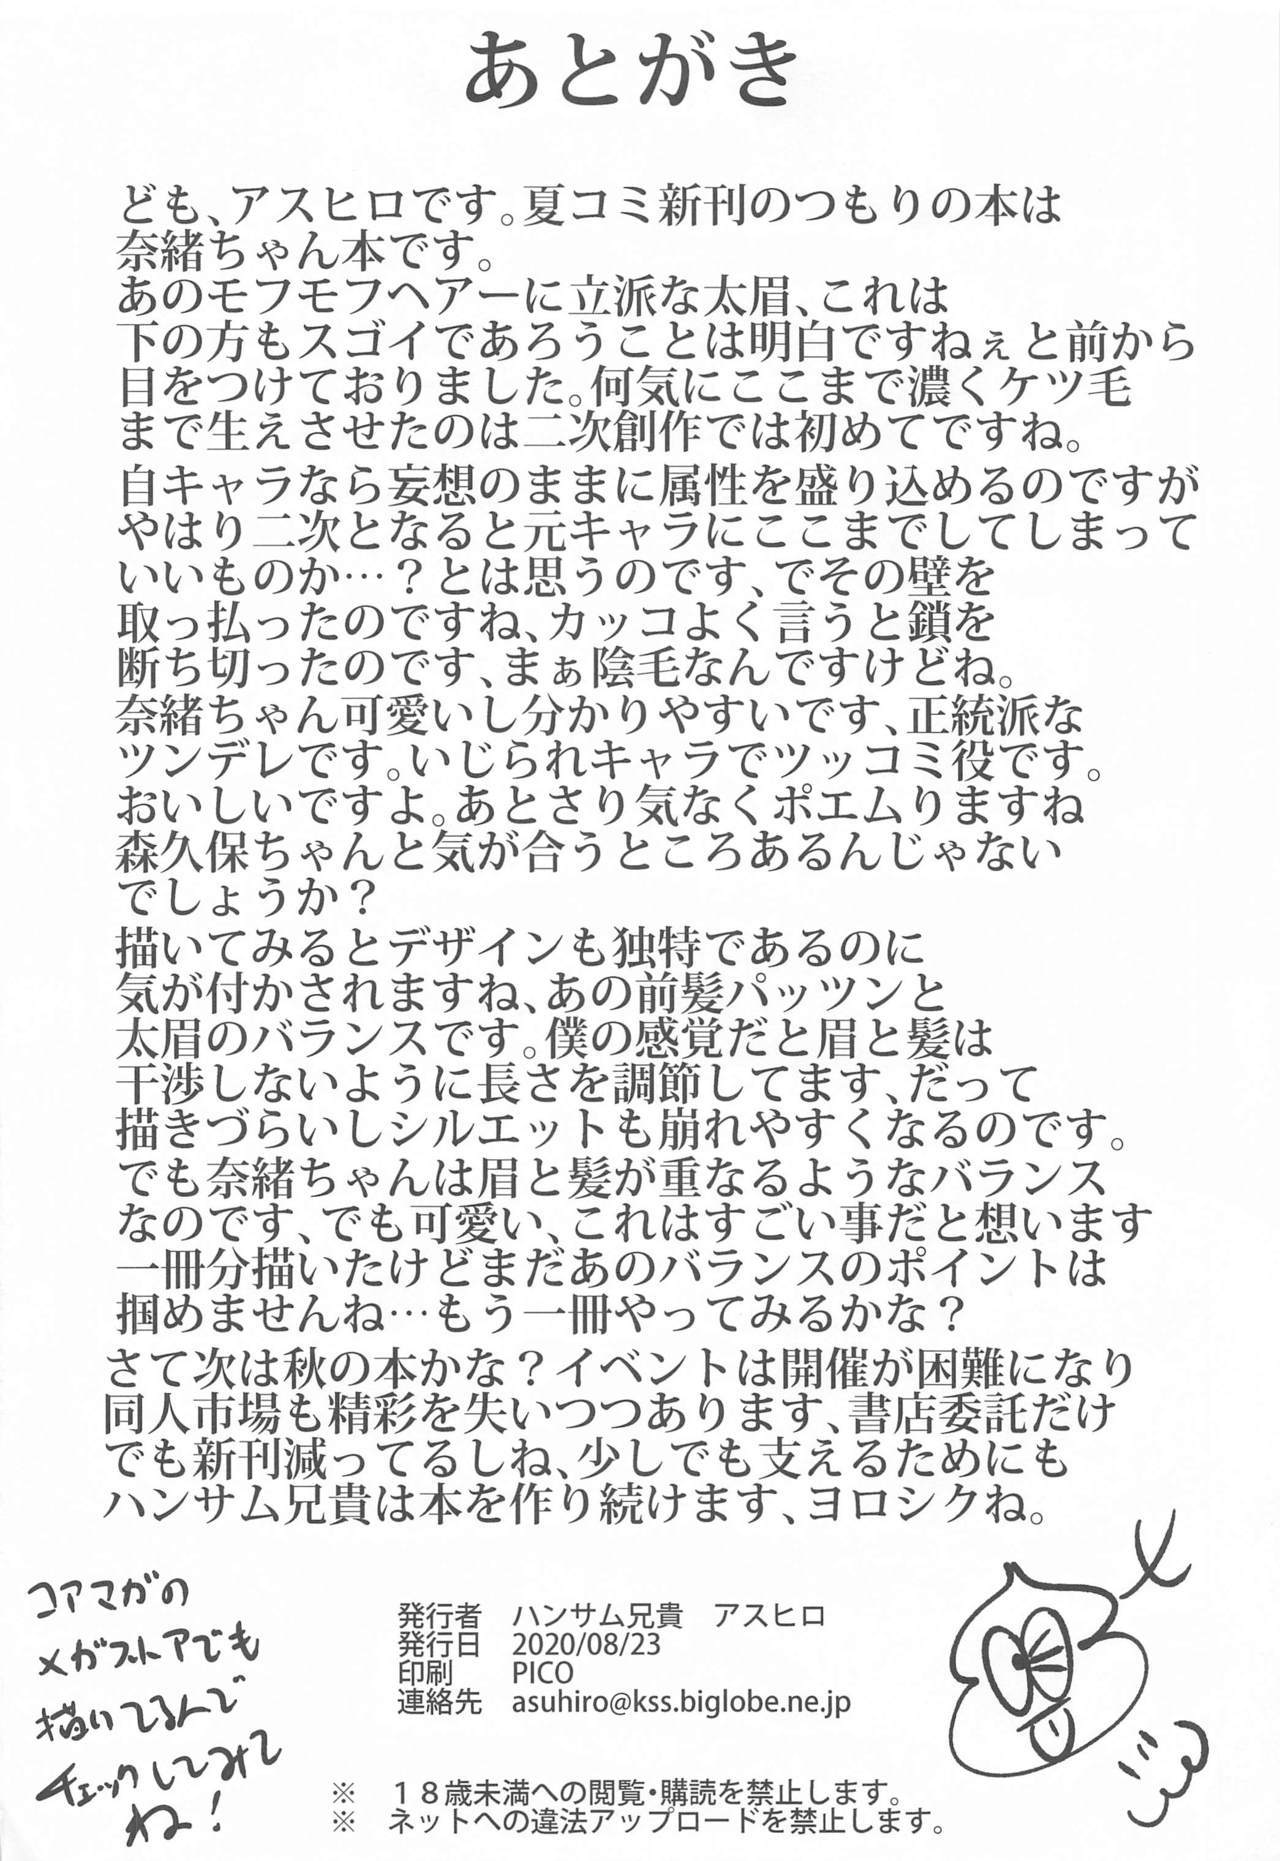 あとがき
ども、アスヒロです。夏コミ新刊のつもりの本は
奈緒ちゃん本です。
あのモフモフヘアーに立派な太眉、これは
下の方もスゴイであろうことは明白ですねぇと前から
目をつけておりました。何気にここまで濃くケツ毛
まで生えさせたのは二次創作では初めてですね。
自キャラなら妄想のままに属性を盛り込めるのですが
やはり二次となると元キャラにここまでしてしまって
いいものか…？とは思うのです、でその壁を
取っ払ったのですね、カッコよく言うと鎖を
断ち切ったのです、まぁ陰毛なんですけどね。
奈緒ちゃん可愛いし分かりやすいです、正統派な
ツンデレです。いじられキャラでツッコミ役です。
おいしいですよ。あとさり気なくポエムりますね
森久保ちゃんと気が合うところあるんじゃない
でしょうか？
描いてみるとデザインも独特であるのに
気が付かされますね、あの前髪パッツンと
太眉のバランスです。僕の感覚だと眉と髪は
干渉しないように長さを調節してます、だって
描きづらいしシルエットも崩れやすくなるのです。
でも奈緒ちゃんは眉と髪が重なるようなバランス
なのです、でも可愛い、これはすごい事だと想います
一冊分描いたけどまだあのバランスのポイントは
掴めませんね…もう一冊やってみるかな？
さて次は秋の本かな？イベントは開催が困難になり
同人市場も精彩を失いつつあります、書店委託だけ
でも新刊減ってるしね、少しでも支えるためにも
ハンサム兄貴は本を作り続けます、ヨロシクね。
コアマガの
メガストアでも
描いてるんで
チェックしてみて
ね！
発行者　ハンサム兄貴　アスヒロ
発行日　2020/08/23
印刷　PICO
連絡先　asuhiro@kss.biglobe.ne.jp
※　１８歳未満への閲覧・購読を禁止します。
※　ネットへの違法アップロードを禁止します。